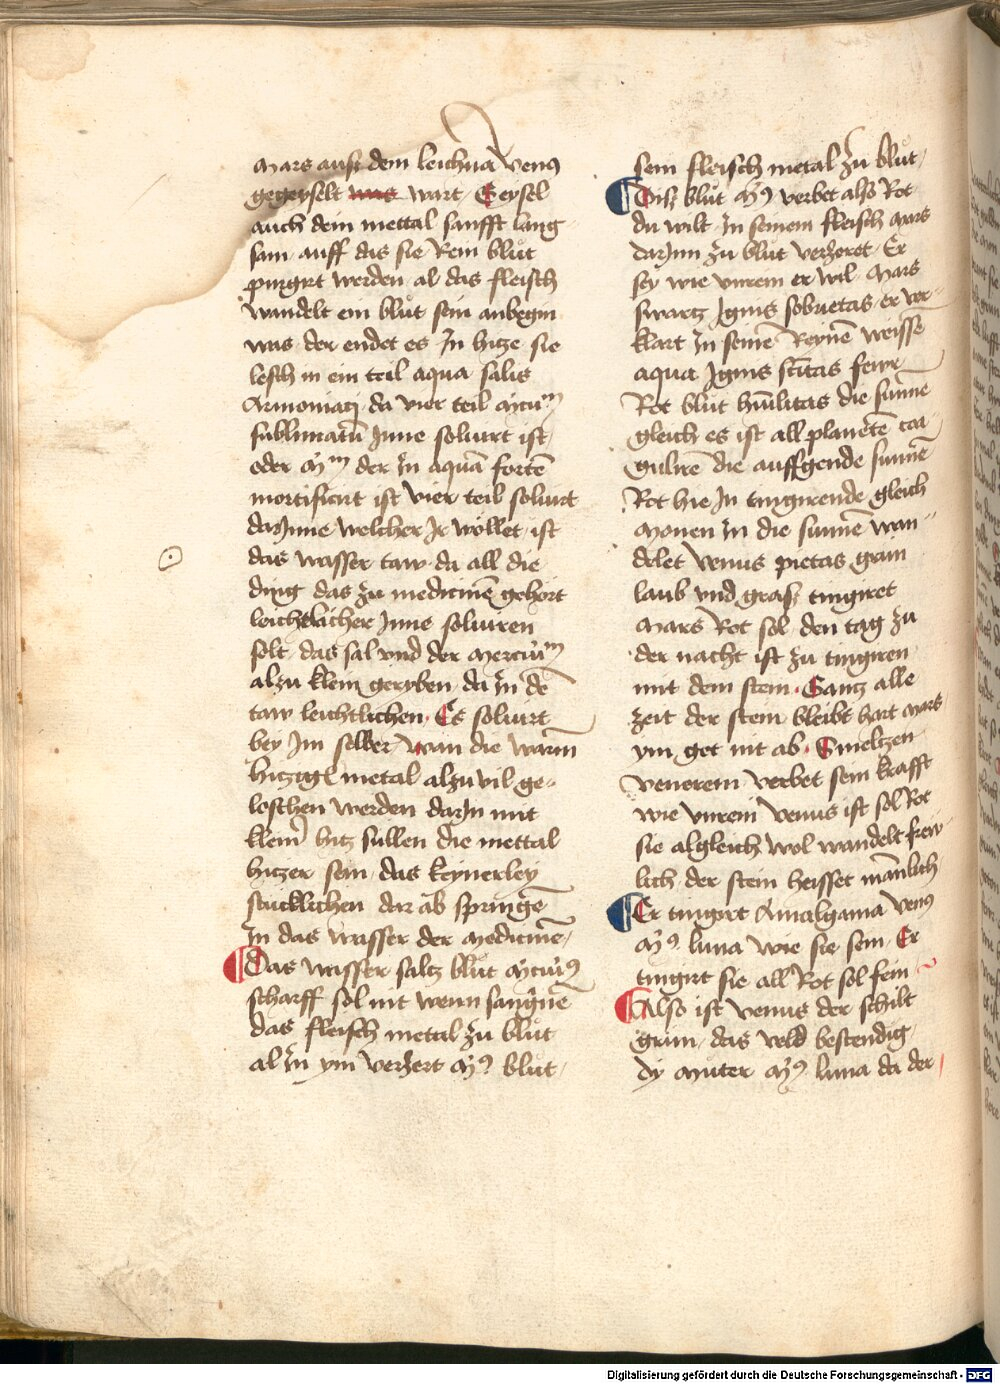 Mars auß dem leichnā venꝰ
gegeyselt was wart · Geysel
auch dein mettal sanfft lang
sam auff das sie Rein blůt
purgirt werden al das fleisch
wandelt ein blůt sein anbegin
was der endet es Jn hitze sie
lesch in ein teil aqua salis
Armoniaci da vier teil mͣcuͬͫ
sublimatū Jnne soluirt ist
oder der Jn aquā fortē
mortificirt ist vier teil soluirt
darJnne welcher Jr wöllet ist
das wasser taw da all die
ding das zu medicinē gehört
leichtlicher Jnne soluiren
solt das sal vnd der
alzu klein geryben da Jn dē
taw leichtlichen · Es soluirt
bey Jm selber wan die warm
hitzigl metal alzu vil ge-
loschen werden darJn mit
klein hitz sullen die mettal
hitzer sein das keynerley
stucklichen dar ab springē
Jn das wasser der medicinē
Das wasser saltz blůt
scharff sol nit wenn sangwinē
das fleisch metal zu blůt
al Jn ym verzert blůt
sein fleisch metal zu blůt
Diß blůt verbet also Rot
du wilt Jn seinem fleisch mars
darJnn zu blůt verzeret · Er
sey wie vnrein er wil mars
swartz Jgnis sobrietas er ver-
klart Jn seinē Reynē weissē
aqua Jgnis fewr
Rot blůt hūilitas die sunne
gleich es ist all planetē coa
gulirē die auffgende sunnē
Rot hie Jn tingirende gleich
monen Jn die sunnē wan-
delet venus pietas grün
laub vnd graß tingiret
Mars Rot sol den tag zu
der nacht ist zu tingiren
mit dem stein · Gantz alle
zeit der stein bleibt hart mars
ym get nit ab · Smeltzen
venerem verbet sein krafft
wie vnrein venus ist sol Rot
sie algleich wol wandelt frew
lich der stein heisset mānlich
Er tingirt Amalgama venꝰ
luna wie sie sein · Er
tingirt sie all Rot sol fein
Also ist venus der schilt
grün das veld bestendig
dy můter luna da der